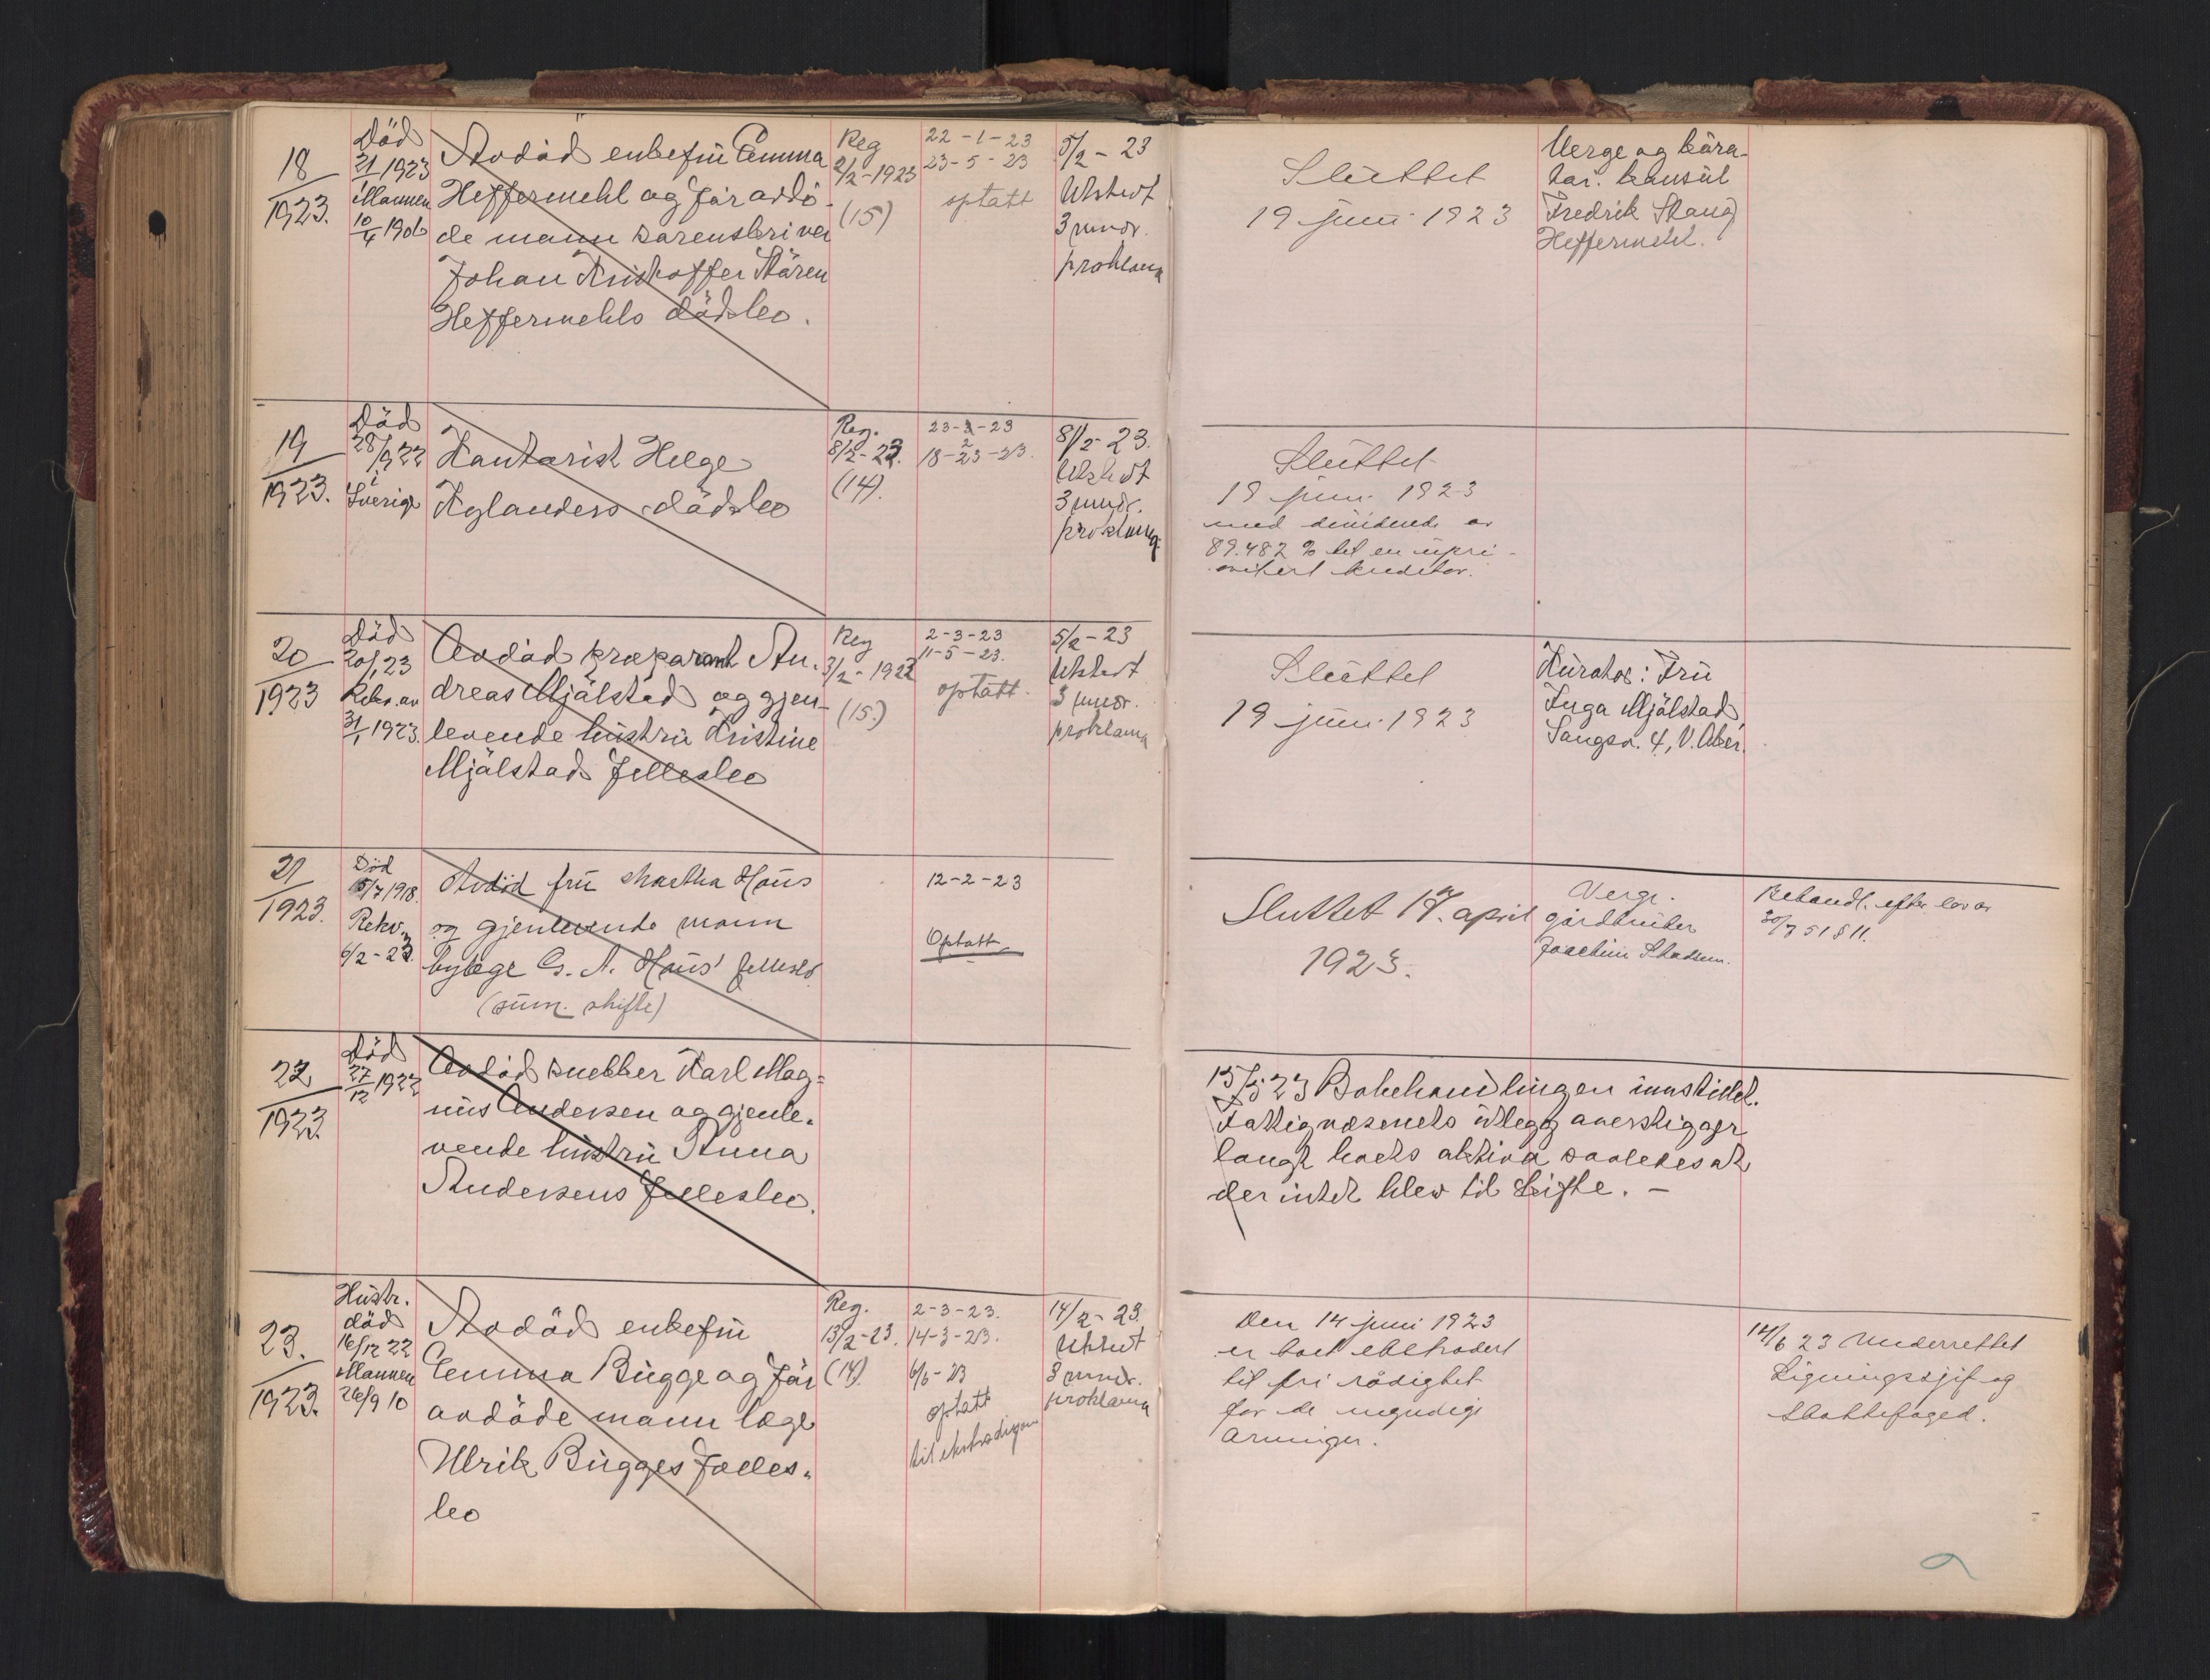 18
1923.
Död
21/1 1923
Mannen
10/4 1906
Avdöd enkefru Emma
Heffermehl og før avdö-
de mann sorenskriver
Johan Kristoffer Støren
Heffermehls dödsbo.
Reg
2/2-1923
(15)
22-1-23
23-5-23
optatt
5/2-23
Utstedt
3 mndr.
proklama
Sluttet
19 juni 1923
Verge og kura-
tor: konsul
Fredrik Stang
Heffermehl.
19
1923.
Död
28/9 22
i
Sverige
Kontorist Helge
Kylanders dödsbo
Reg.
8/2-23.
(14).
23-2-23
18-23-23.
8/2-23.
Utstedt
3 mndr.
proklama
Sluttet
19 juni 1923
med dividende av
89.482 % til en upri-
oritert kreditor.
20
1923
Död
20/1 23
Rekv. av
31/1 1923.
Avdöd preparant An-
dreas Mjålstad og gjen-
levende hustru Kristine
Mjålstad fellesbo
Reg
3/2-1923
(15.)
2-3-23
11-5-23.
optatt.
5/2-23
Utstedt
3 mndr.
proklama
Sluttet
19 juni 1923
Kurator: Fru
Inga Mjålstad
Sangsv. 4, V. Aker.
21
1923.
Död
15/7 1918.
Rekv.
6/2-23.
Avdöd fru Martha Hous
og gjenlevende mann
bylæge G. A. Hous' fellesbo
(sum. skifte)
12-2-23
Optatt
Sluttet 17. april
1923.
Verge.
gårdbruker
Joachim
Behandl. efter lov av
30/7 51 § 11.
22
1923.
Död
27/12 1922
Avdöd snekker Karl Mag-
nus Andersen og gjenle-
vende hustru Anna
Andersens fellesbo.
15/5 23 Bobehandlingen innstillet.
Fattigvæsenets utlegg overstiger
langt boets aktiva saaledes at
der intet blev til skifte. -
23.
1923.
Hustr.
död
16/12 22
Mannen
26/9 10
Avdöd enkefru
Emma Bugge og før
avdöde mann læge
Ulrik Bugges felles-
bo
Reg.
13/2-23.
(14).
2-3-23.
14-3-23.
6/6-23
optatt
til ekstradigon
14/2-23.
Utstedt
3 mndr.
proklama
Den 14 juni 1923
er boet ekstradert
til fri rådighet
for de myndige
arvinger.
14/6 23 Underrettet
Ligningssjef og
Skattefoged.